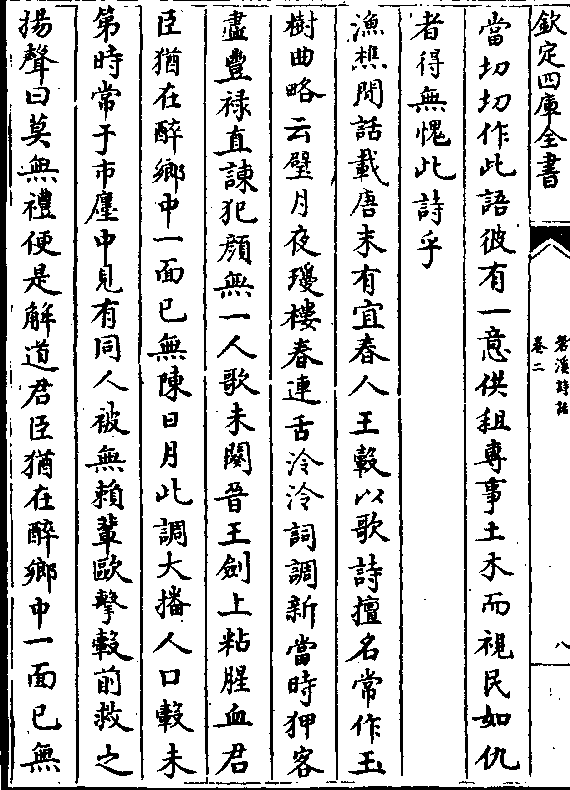 欽定四庫全書
䂬溪詩話
卷二
八
當切切作此語彼有一意供租專事土木而視民如仇
者得無愧此詩乎
漁樵閒話載唐末有宜春人王轂以歌詩擅名常作玉
樹曲略云璧月夜瓊樓春連舌泠泠詞調新當時狎客
盡豐禄直諫犯顔無一人歌未闋晉王劍上粘腥血君
臣猶在醉鄉中一面已無陳日月此調大播人口轂未
第時常于市廛中見有同人被無賴輩毆擊轂前救之
揚聲曰莫無禮便是解道君臣猶在醉鄉中一面已無